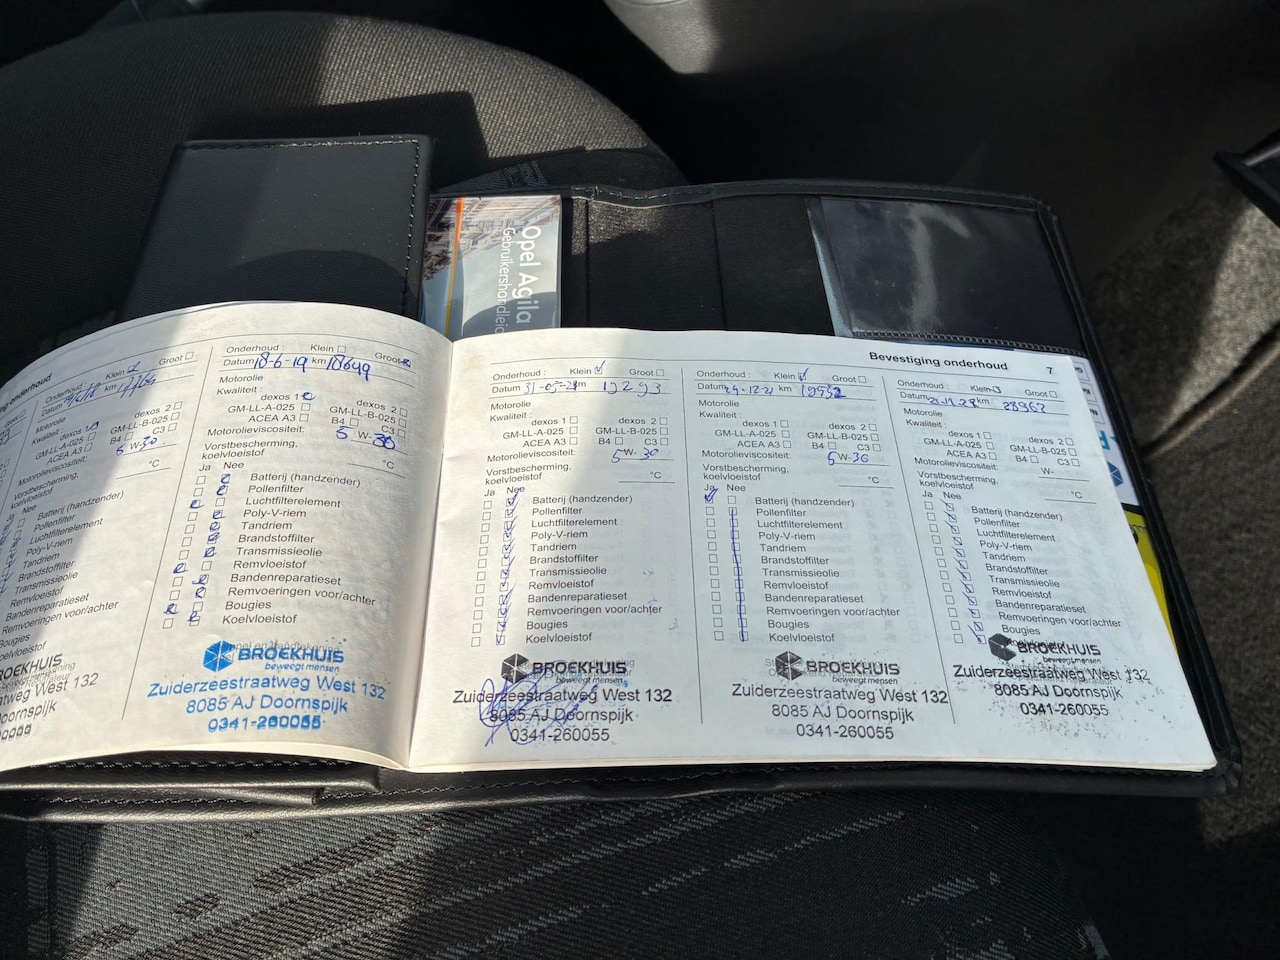 Opel Agila
Onderhoud
Onderhoud : Klein Groot
km 17764
Motorolie
Kwaliteit :
dexos 1
dexos 2
GM-LL-A-025
GM-LL-B-025
ACEA A3
B4 C3
Motorolieviscositeit: 5 W-30
Vorstbescherming,
koelvloeistof
°C
Ja Nee
Batterij (handzender)
Pollenfilter
Luchtfilterelement
Poly-V-riem
Tandriem
Brandstoffilter
Transmissieolie
Remvloeistof
Bandenreparatieset
Remvoeringen voor/achter
Bougies
Koelvloeistof
BROEKHUIS
Onderhoud : Klein Groot
Datum 18-6-19 km 18649
Motorolie
Kwaliteit :
dexos 1 dexos 2
GM-LL-A-025 GM-LL-B-025
ACEA A3 B4 C3
Motorolieviscositeit: 5 W-30
Vorstbescherming,
koelvloeistof °C
Ja Nee
Batterij (handzender)
Pollenfilter
Luchtfilterelement
Poly-V-riem
Tandriem
Brandstoffilter
Transmissieolie
Remvloeistof
Bandenreparatieset
Remvoeringen voor/achter
Bougies
Koelvloeistof
BROEKHUIS
beweegt mensen
Zuiderzeestraatweg West 132
8085 AJ Doornspijk
0341-260055
Bevestiging onderhoud 7
Onderhoud : Klein Groot
Datum km 19293
Motorolie
Kwaliteit :
dexos 1 dexos 2
GM-LL-A-025 GM-LL-B-025
ACEA A3 B4 C3
Motorolieviscositeit: 5 W- 30
Vorstbescherming,
koelvloeistof °C
Ja Nee
Batterij (handzender)
Pollenfilter
Luchtfilterelement
Poly-V-riem
Tandriem
Brandstoffilter
Transmissieolie
Remvloeistof
Bandenreparatieset
Remvoeringen voor/achter
Bougies
Koelvloeistof
BROEKHUIS
beweegt mensen
Zuiderzeestraatweg West 132
8085 AJ Doornspijk
0341-260055
Onderhoud : Klein Groot
Datum km
Motorolie
Kwaliteit :
dexos 1 dexos 2
GM-LL-A-025 GM-LL-B-025
ACEA A3 B4 C3
Motorolieviscositeit: 5 W-30
Vorstbescherming,
koelvloeistof °C
Ja Nee
Batterij (handzender)
Pollenfilter
Luchtfilterelement
Poly-V-riem
Tandriem
Brandstoffilter
Transmissieolie
Remvloeistof
Bandenreparatieset
Remvoeringen voor/achter
Bougies
Koelvloeistof
BROEKHUIS
beweegt mensen
Zuiderzeestraatweg West 132
8085 AJ Doornspijk
0341-260055
Onderhoud : Klein Groot
Datum km 28962
Motorolie
Kwaliteit :
dexos 1 dexos 2
GM-LL-A-025 GM-LL-B-025
ACEA A3 B4 C3
Motorolieviscositeit: W-
Vorstbescherming,
koelvloeistof °C
Ja Nee
Batterij (handzender)
Pollenfilter
Luchtfilterelement
Poly-V-riem
Tandriem
Brandstoffilter
Transmissieolie
Remvloeistof
Bandenreparatieset
Remvoeringen voor/achter
Bougies
Koelvloeistof
BROEKHUIS
beweegt mensen
Zuiderzeestraatweg West 132
8085 AJ Doornspijk
0341-260055